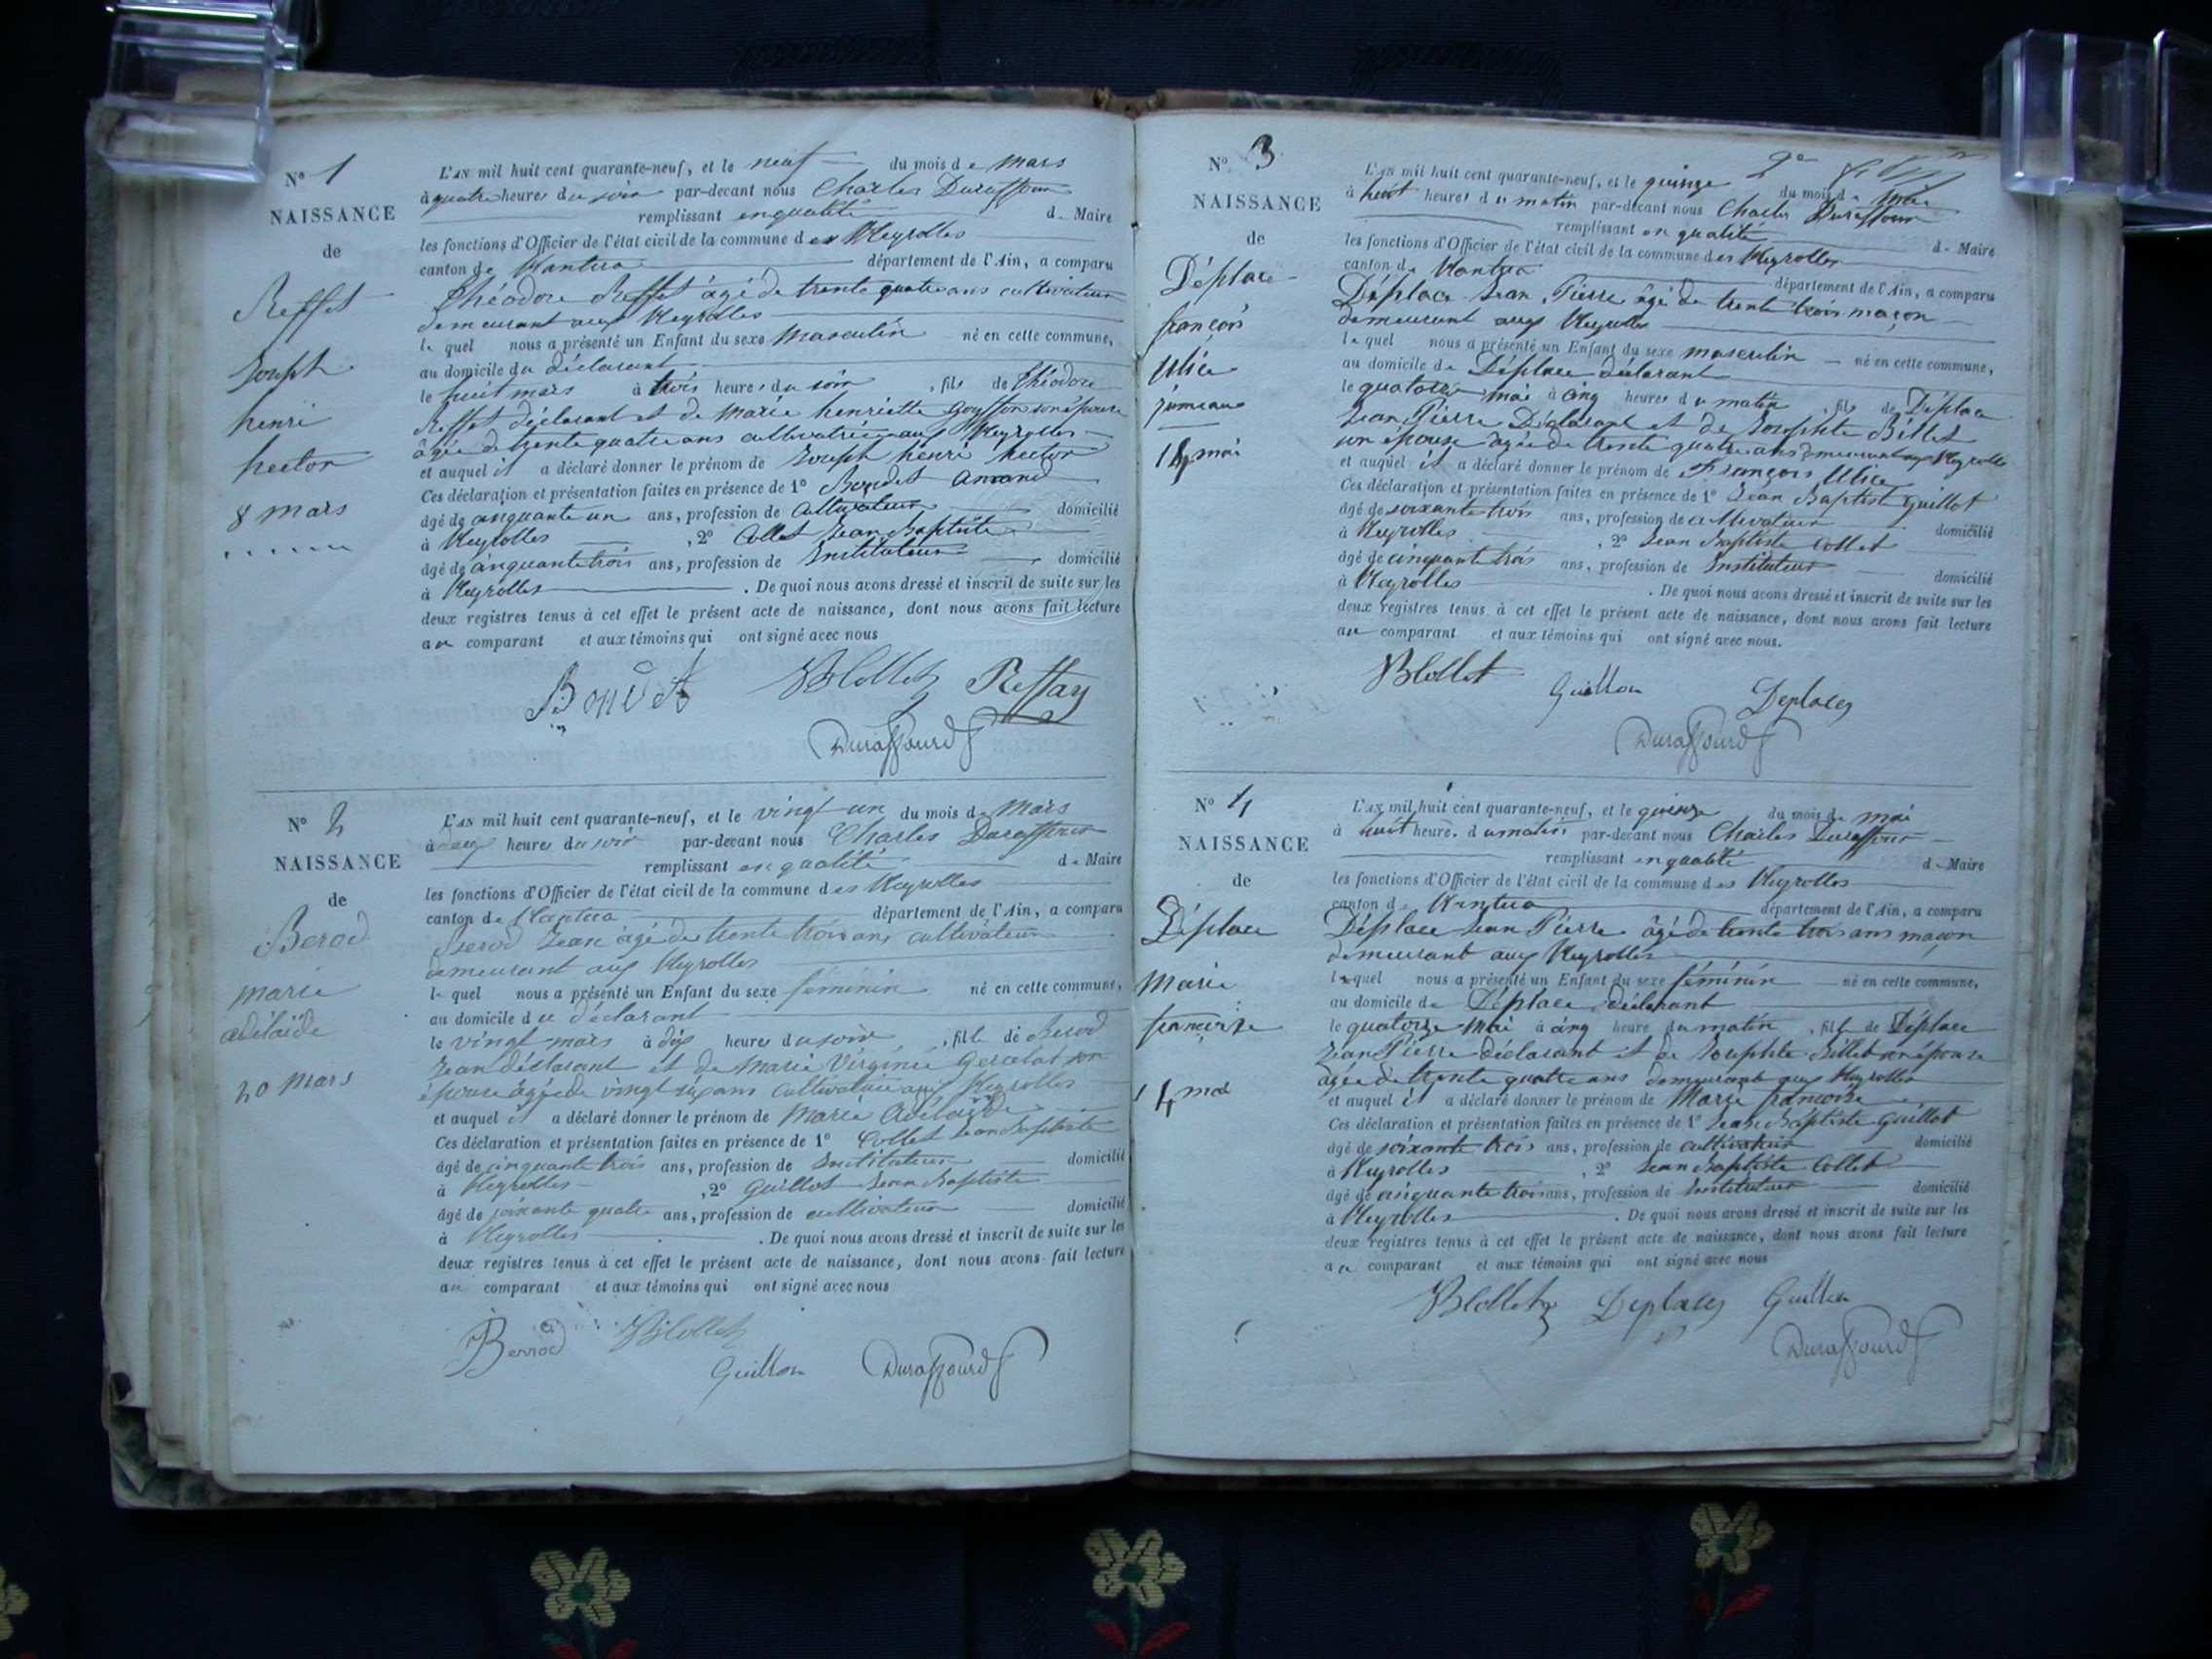 N° 1
NAISSANCE
de
Reffet
Joseph
henri
hector
8 mars
L'AN mil huit cent quarante-neuf, et le neuf du mois de mars
à quatre heures du soir par-devant nous Charles Duraffour
remplissant en qualité de Maire
les fonctions d'Officier de l'état civil de la commune des Neyrolles
canton de Nantua département de l'Ain, a comparu
Théodore Reffet âgé de trente quatre ans cultivateur
demeurant aux Neyrolles
le quel nous a présenté un Enfant du sexe masculin né en cette commune,
au domicile du déclarant
le huit mars à trois heures du soir, fils de théodore
Reffet déclarant et de marie henriette son épouse
âgée de trente quatre ans cultivatrice aux Neyrolles
et auquel il a déclaré donner le prénom de Joseph henri hector
Ces déclaration et présentation faites en présence de 1° Bondet Amand
âgé de cinquante un ans, profession de cultivateur domicilié
à Neyrolles, 2° Collet Jean Baptiste
âgé de cinquante trois ans, profession de Instituteur domicilié
à Neyrolles. De quoi nous avons dressé et inscrit de suite sur les
deux registres tenus à cet effet le présent acte de naissance, dont nous avons fait lecture
au comparant et aux témoins qui ont signé avec nous
Bondet JBCollet Reffay
Duraffourd
N° 2
NAISSANCE
de
Berod
marie
adélaïde
20 mars
L'AN mil huit cent quarante-neuf, et le vingt un du mois de mars
à deux heures du soir par-devant nous Charles Duraffour
remplissant en qualité de Maire
les fonctions d'Officier de l'état civil de la commune des Neyrolles
canton de Nantua département de l'Ain, a comparu
Berod Jean âgé de trente trois ans cultivateur
demeurant aux Neyrolles
le quel nous a présenté un Enfant du sexe féminin né en cette commune,
au domicile du déclarant
le vingt mars à dix heures du soir, fille de Berod
Jean déclarant et de Marie Virginie son
épouse âgée de vingt six ans cultivatrice aux Neyrolles
et auquel il a déclaré donner le prénom de Marie Adélaïde
Ces déclaration et présentation faites en présence de 1° Collet Jean Baptiste
âgé de cinquante trois ans, profession de Instituteur domicilié
à Neyrolles, 2° Guillot Jean Baptiste
âgé de soixante quatre ans, profession de cultivateur domicilié
à Neyrolles. De quoi nous avons dressé et inscrit de suite sur les
deux registres tenus à cet effet le présent acte de naissance, dont nous avons fait lecture
au comparant et aux témoins qui ont signé avec nous
Berrod JBCollet
Guillon Duraffourd
N° 3
NAISSANCE
de
Déplace
françois
Ulice
jumeaux
14 mai
L'AN mil huit cent quarante-neuf, et le quinze du mois de mai
à huit heures du matin par-devant nous Charles Duraffour
remplissant en qualité de Maire
les fonctions d'Officier de l'état civil de la commune des Neyrolles
canton de Nantua département de l'Ain, a comparu
Déplace Jean Pierre âgé de trente trois maçon
demeurant aux Neyrolles
le quel nous a présenté un Enfant du sexe masculin né en cette commune,
au domicile de Déplace déclarant
le quatorze mai à cinq heures du matin, fils de Déplace
Jean Pierre Déclarant et de Josephte Billet
son épouse âgée de trente quatre ans demeurant aux Neyrolles
et auquel il a déclaré donner le prénom de François Ulice
Ces déclaration et présentation faites en présence de 1° Jean Baptiste Guillot
âgé de soixante trois ans, profession de cultivateur domicilié
à Neyrolles, 2° Jean Baptiste Collet
âgé de cinquante trois ans, profession de Instituteur domicilié
à Neyrolles. De quoi nous avons dressé et inscrit de suite sur les
deux registres tenus à cet effet le présent acte de naissance, dont nous avons fait lecture
au comparant et aux témoins qui ont signé avec nous.
JBCollet Guillon Deplacez
Duraffourd
N° 4
NAISSANCE
de
Déplace
Marie
françoise
14 mai
L'AN mil huit cent quarante-neuf, et le quinze du mois de mai
à huit heures du matin par-devant nous Charles Duraffour
remplissant en qualité de Maire
les fonctions d'Officier de l'état civil de la commune des Neyrolles
canton de Nantua département de l'Ain, a comparu
Déplace Jean Pierre âgé de trente trois ans maçon
demeurant aux Neyrolles
lequel nous a présenté un Enfant du sexe féminin né en cette commune,
au domicile de Déplace déclarant
le quatorze mai à cinq heure du matin, fille de Déplace
Jean Pierre déclarant et de Josephte Billet son épouse
âgée de trente quatre ans demeurant aux Neyrolles
et auquel il a déclaré donner le prénom de Marie françoise
Ces déclaration et présentation faites en présence de 1° Jean Baptiste Guillot
âgé de soixante trois ans, profession de cultivateur domicilié
à Neyrolles, 2° Jean Baptiste Collet
âgé de cinquante trois ans, profession de Instituteur domicilié
à Neyrolles. De quoi nous avons dressé et inscrit de suite sur les
deux registres tenus à cet effet le présent acte de naissance, dont nous avons fait lecture
au comparant et aux témoins qui ont signé avec nous
JBCollet Deplacez Guillon
Duraffourd